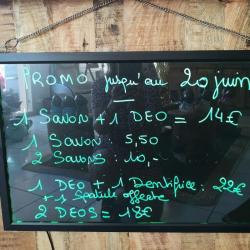 PROMO jusqu'au 20 juin
1 SAVON + 1 DEO = 14€
1 SAVON : 5,50
2 SAVONS : 10,-
1 DEO + 1 Dentifrice : 22€
+ 1 Spatule offerte
2 DEOS = 18€